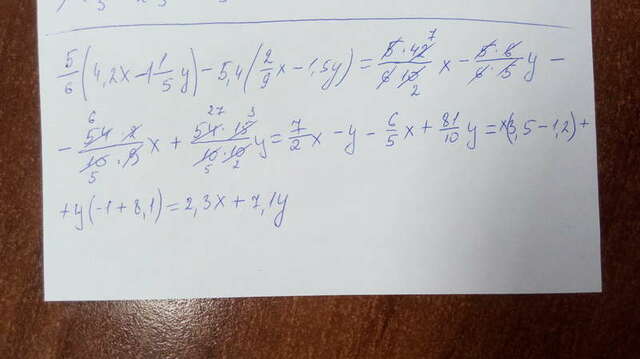 5/6(4,2x - 1 1/5y) - 5,4(2/9x - 1,5y) = 5·42/6·10 x - 5·6/6·5 y -
- 54·2/10·9 x + 54·15/10·10 y = 7/2x - y - 6/5x + 81/10y = x(3,5 - 1,2) +
+ y(-1 + 8,1) = 2,3x + 7,1y